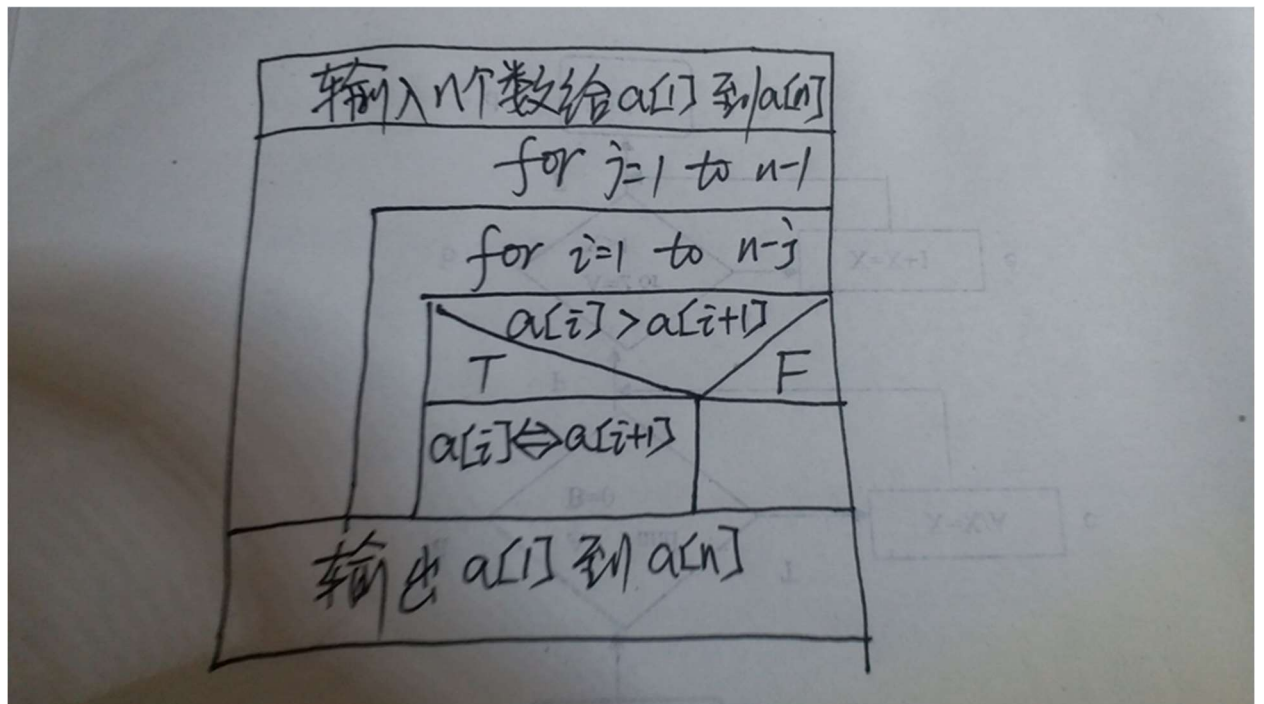 输入n个数给a[1]到a[n]
for j=1 to n-1
for i=1 to n-j
a[i]>a[i+1]
T F
a[i]⇔a[i+1]
输出a[1]到a[n]
X=X+1
B=0